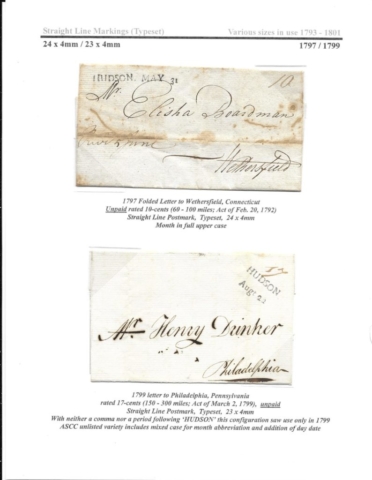 Straight Line Markings (Typeset) Various sizes in use 1793 - 1801
24 x 4mm / 23 x 4mm 1797 / 1799
HUDSON, MAY 31
10
Mr.
Elisha Boardman
Wethersfield
1797 Folded Letter to Wethersfield, Connecticut
Unpaid rated 10-cents (60 - 100 miles; Act of Feb. 20, 1792)
Straight Line Postmark, Typeset, 24 x 4mm
Month in full upper case
17
HUDSON
Aug: 23
Mr Henry Drinker
Philadelphia
1799 letter to Philadelphia, Pennsylvania
rated 17-cents (150 - 300 miles; Act of March 2, 1799), unpaid
Straight Line Postmark, Typeset, 23 x 4mm
With neither a comma nor a period following 'HUDSON' this configuration saw use only in 1799
ASCC unlisted variety includes mixed case for month abbreviation and addition of day date